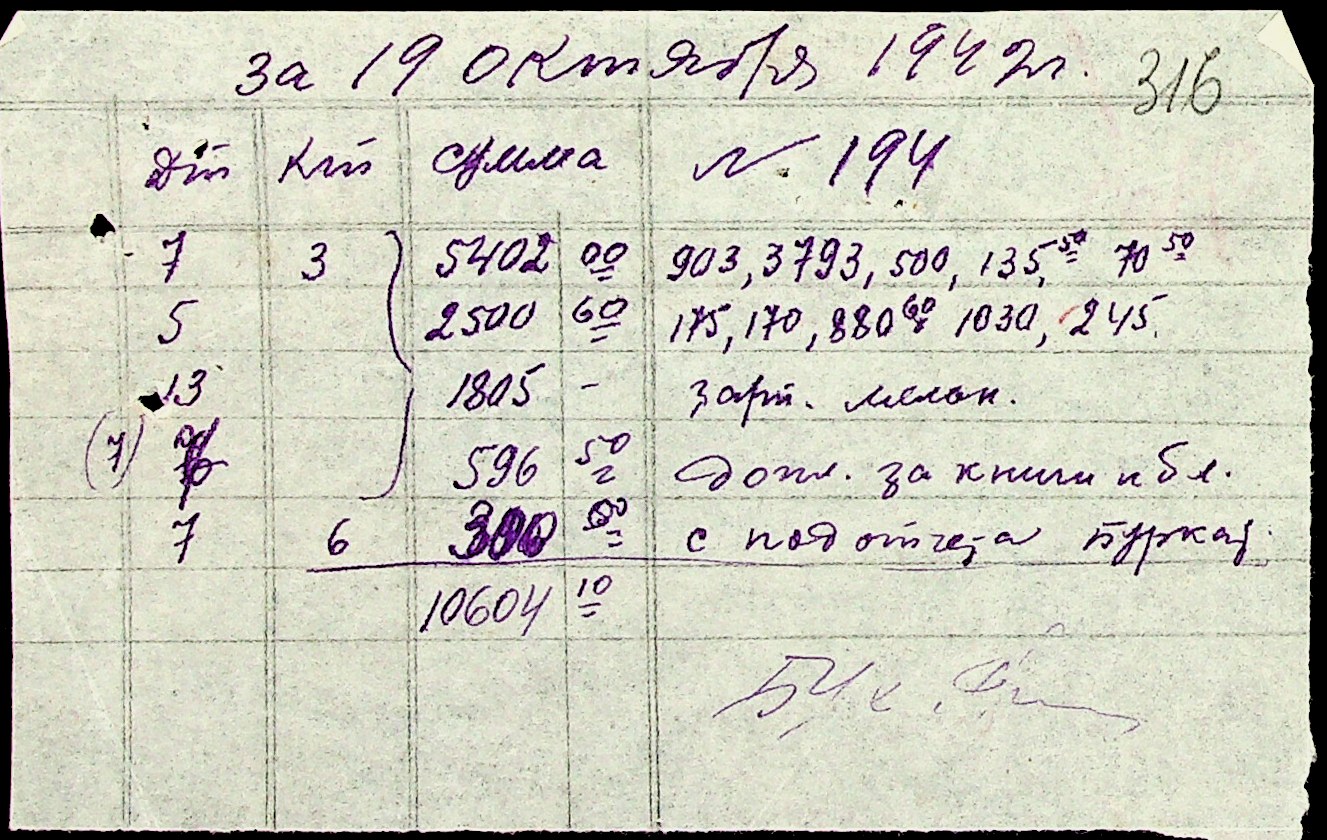 за 19 октября 1942 г.
316
Дт Кт сумма № 194
7 3 5402 00 903, 3793, 500, 135,50 70 50
5 2500 60 175, 170, 880 60 1030, 245.
13 1805 - зарп.
(7) 596 50 допл. за книги и бл.
7 6 300 00 с подотчета
10604 10
Бух.